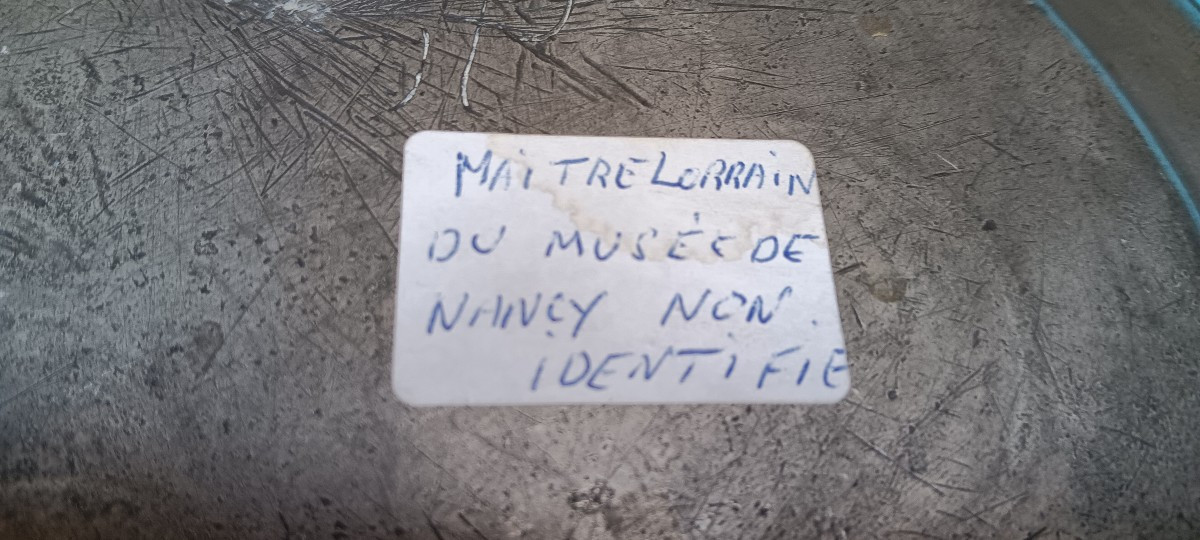 MAiTRE LORRAiN
DU MUSÉE DE
NANCY NON.
IDENTIFIE